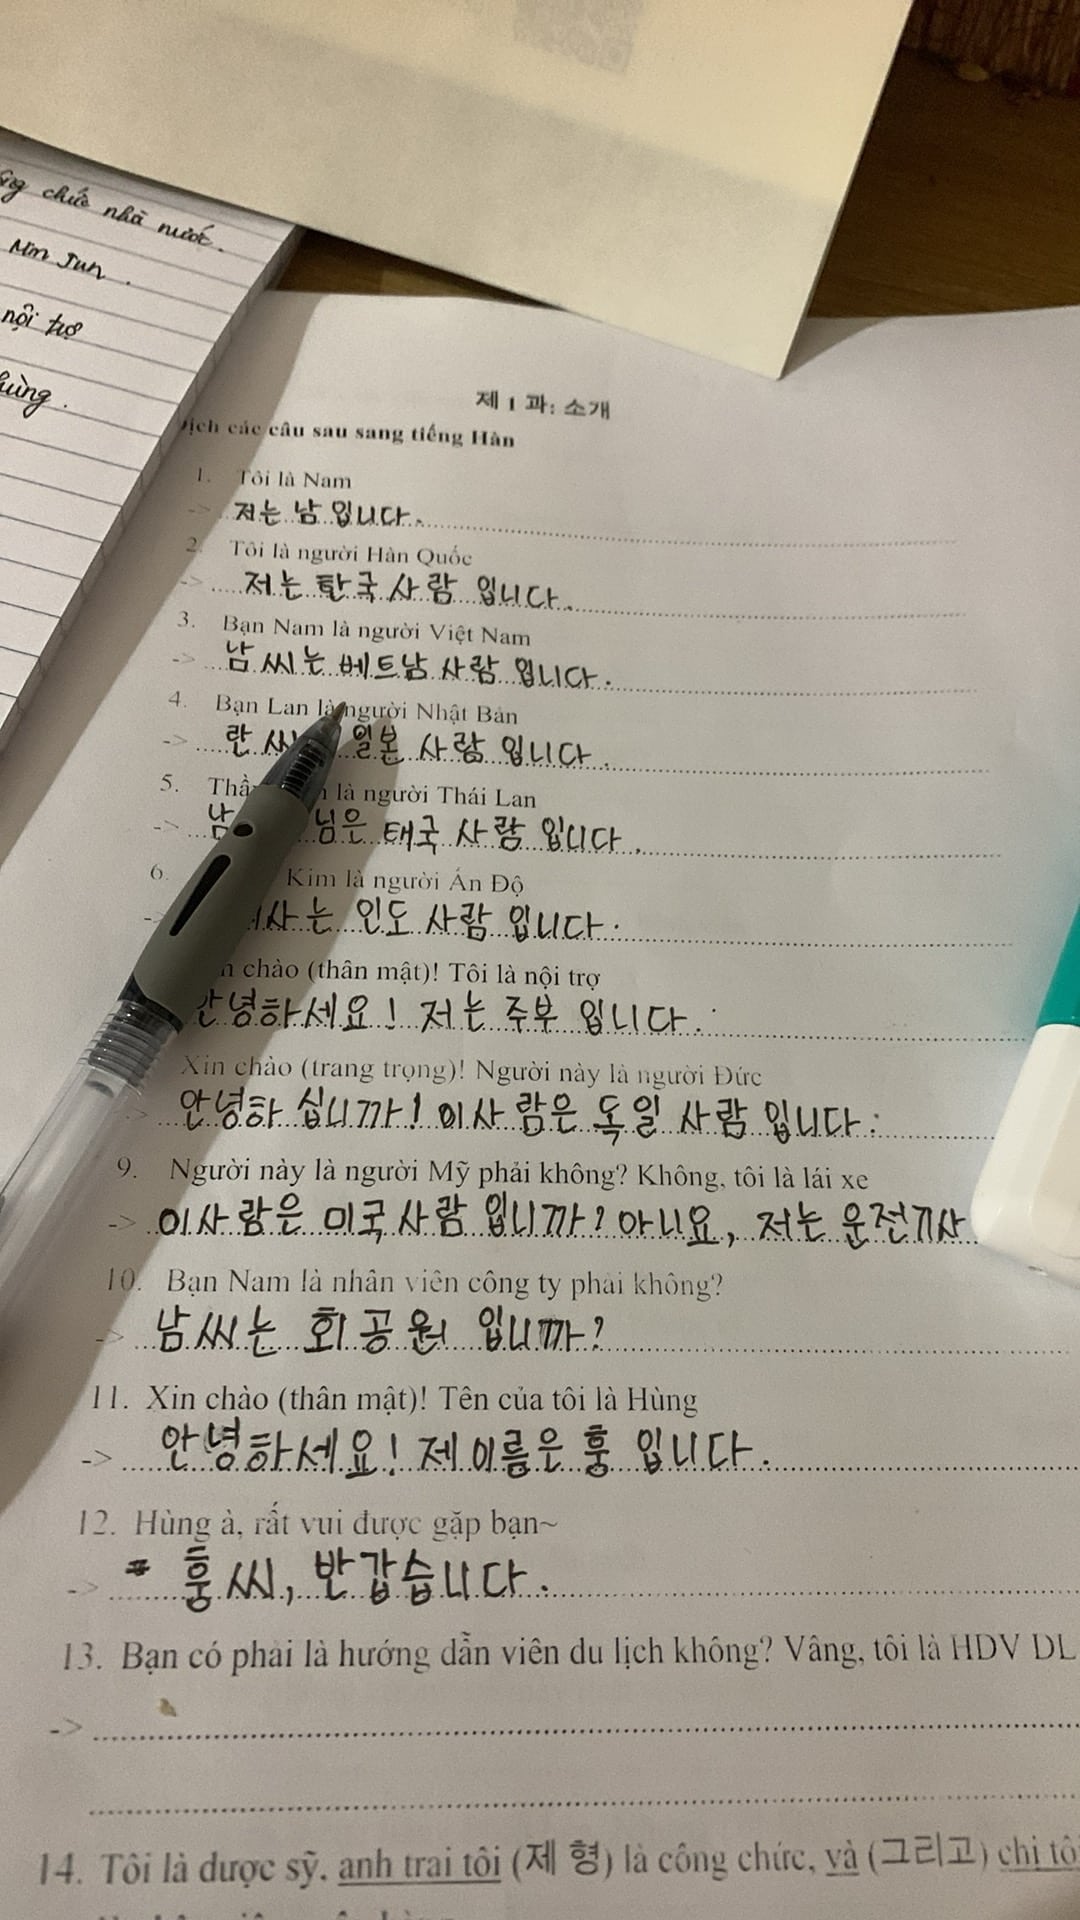 chức nhà nước.
Min Jun.
nội trợ
제 1 과: 소개
Dịch các câu sau sang tiếng Hàn
1. Tôi là Nam
-> 저는 남 입니다.
2. Tôi là người Hàn Quốc
-> 저는 한국 사람 입니다.
3. Bạn Nam là người Việt Nam
-> 남 씨는 베트남 사람 입니다.
4. Bạn Lan là người Nhật Bản
-> 란 씨 일본 사람 입니다.
5. là người Thái Lan
-> 남 님은 태국 사람 입니다.
6. Kim là người Ấn Độ
는 인도 사람 입니다.
chào (thân mật)! Tôi là nội trợ
안녕하세요! 저는 주부 입니다.
Xin chào (trang trọng)! Người này là người Đức
-> 안녕하 십니까! 이 사람은 독일 사람 입니다.
9. Người này là người Mỹ phải không? Không, tôi là lái xe
-> 이 사람은 미국 사람 입니까? 아니요, 저는 운전기사
10. Bạn Nam là nhân viên công ty phải không?
-> 남 씨는 회공원 입니까?
11. Xin chào (thân mật)! Tên của tôi là Hùng
-> 안녕하세요! 제 이름은 훙 입니다.
12. Hùng à, rất vui được gặp bạn~
-> 훙 씨, 반갑습니다.
13. Bạn có phải là hướng dẫn viên du lịch không? Vâng, tôi là HDV DL
->
14. Tôi là dược sỹ, anh trai tôi (제 형) là công chức, và (그리고) chị tô